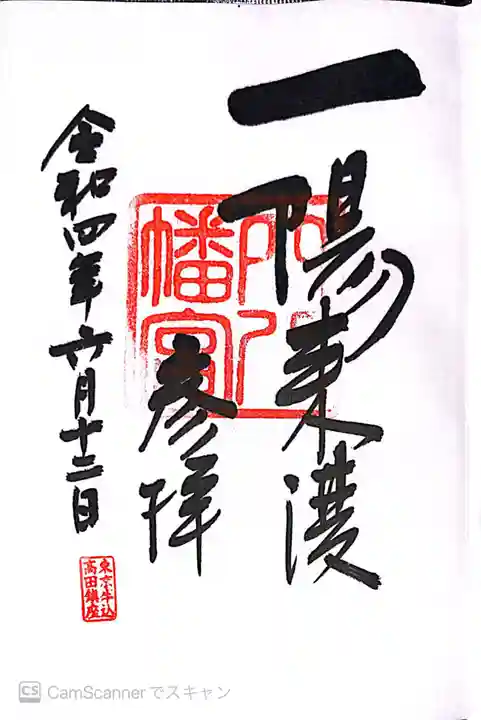 一陽来復
穴八幡宮
参拝
令和四年六月十三日
東京牛込
高田鎮座
CS CamScannerでスキャン